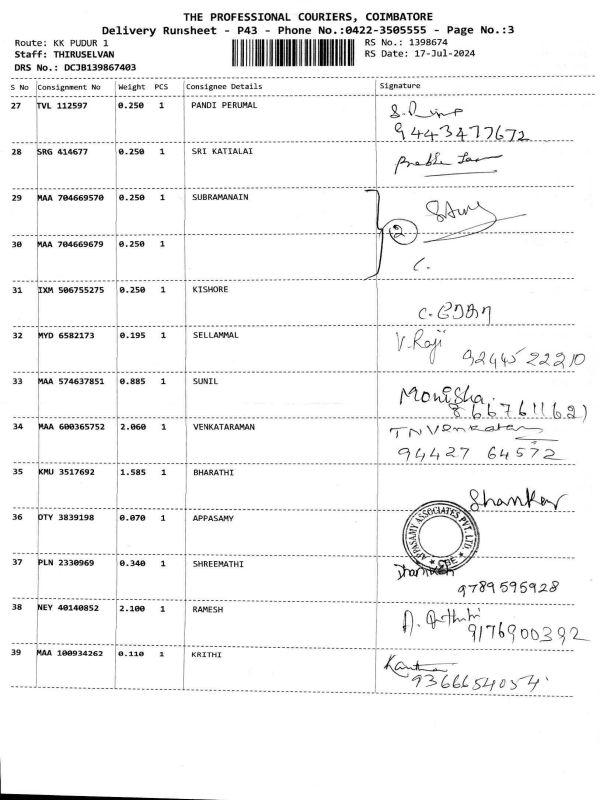 THE PROFESSIONAL COURIERS, COIMBATORE
Delivery Runsheet - P43 - Phone No.:0422-3505555 - Page No.:3
Route: KK PUDUR 1 RS No.: 1398674
Staff: THIRUSELVAN RS Date: 17-Jul-2024
DRS No.: DCJB139867403
S No Consignment No Weight PCS Consignee Details Signature
27 TVL 112597 0.250 1 PANDI PERUMAL
9443477672
28 SRG 414677 0.250 1 SRI KATIALAI
29 MAA 704669570 0.250 1 SUBRAMANAIN
2
30 MAA 704669679 0.250 1
31 IXM 506755275 0.250 1 KISHORE
32 MYD 6582173 0.195 1 SELLAMMAL V. Raji
9244522210
33 MAA 574637851 0.885 1 SUNIL Monisha
34 MAA 600365752 2.060 1 VENKATARAMAN TNVenkatam
94427 64572
35 KMU 3517692 1.585 1 BHARATHI
Shankar
36 OTY 3839198 0.070 1 APPASAMY
APPASAMY ASSOCIATES PVT. LTD. * CBE *
37 PLN 2330969 0.340 1 SHREEMATHI
9789595928
38 NEY 40140852 2.100 1 RAMESH
9176900392
39 MAA 100934262 0.110 1 KRITHI
9366654054